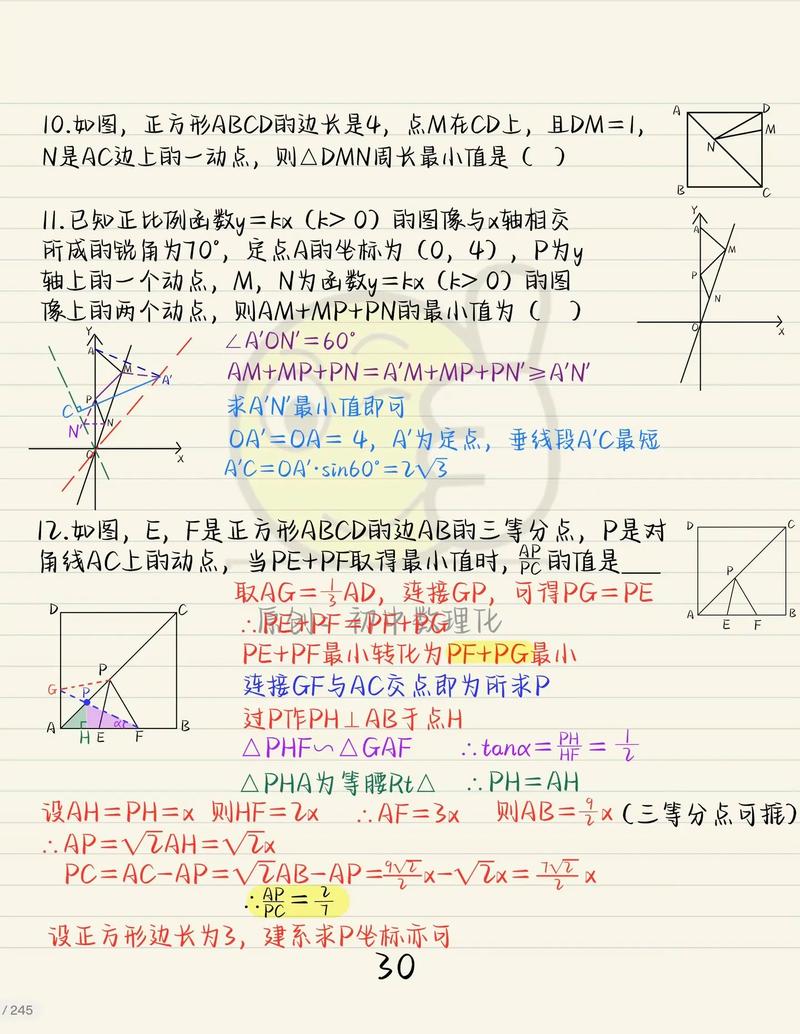 10.如图，正方形ABCD的边长是4，点M在CD上，且DM=1，
N是AC边上的一动点，则△DMN周长最小值是（ ）
A
D
M
N
B
C
11.已知正比例函数y=kx（k>0）的图像与x轴相交
所成的锐角为70°，定点A的坐标为（0，4），P为y
轴上的一个动点，M，N为函数y=kx（k>0）的图
像上的两个动点，则AM+MP+PN的最小值为（ ）
Y
A
M
P
N
O
X
Y
A
M
A'
P
C
N'
N
O
X
∠A'ON'=60°
AM+MP+PN=A'M+MP+PN'≥A'N'
求A'N'最小值即可
OA'=OA=4，A'为定点，垂线段A'C最短
A'C=OA'·sin60°=2√3
12.如图，E，F是正方形ABCD的边AB的三等分点，P是对
角线AC上的动点，当PE+PF取得最小值时，AP/PC的值是___
D
C
P
A
E
F
B
取AG=1/3AD，连接GP，可得PG=PE
∴PE+PF=PF+PG
原创 初中数理化
PE+PF最小转化为PF+PG最小
连接GF与AC交点即为所求P
过P作PH⊥AB于点H
△PHF∽△GAF ∴tanα=PH/HF=1/2
△PHA为等腰Rt△ ∴PH=AH
D
C
G
P
P
α
A
H
E
F
B
设AH=PH=x 则HF=2x ∴AF=3x 则AB=9/2x（三等分点可推）
∴AP=√2AH=√2x
PC=AC-AP=√2AB-AP=9√2/2x-√2x=7√2/2x
∴AP/PC=2/7
设正方形边长为3，建系求P坐标亦可
30
/ 245